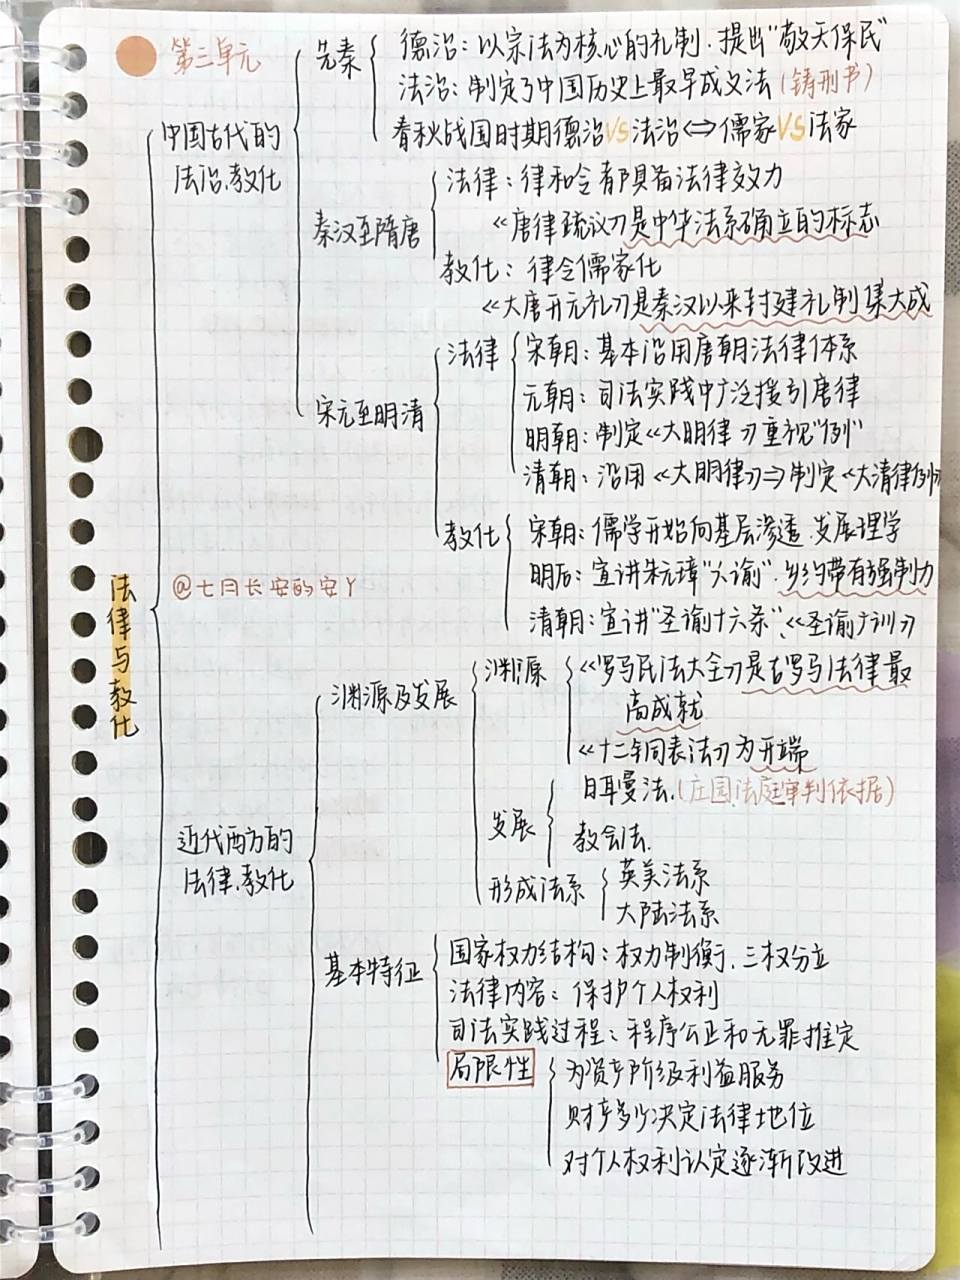 第三单元
先秦
德治：以宗法为核心的礼制．提出"敬天保民"
法治：制定了中国历史上最早成文法(铸刑书)
春秋战国时期德治VS法治⇔儒家VS法家
中国古代的
法治.教化
秦汉至隋唐
法律：律和令都具备法律效力
《唐律疏议》是中华法系确立的标志
教化：律令儒家化
《大唐开元礼》是秦汉以来封建礼制集大成
宋元至明清
法律
宋朝：基本沿用唐朝法律体系
元朝：司法实践中广泛援引唐律
明朝：制定《大明律》重视"例"
清朝：沿用《大明律》⇒制定《大清律例》
教化
宋朝：儒学开始向基层渗透.发展理学
明后：宣讲朱元璋"六谕"．乡约带有强制力
清朝：宣讲"圣谕十六条"、《圣谕广训》
@七月长安的安丫
法律与教化
渊源及发展
渊源
《罗马民法大全》是古罗马法律最
高成就
《十二铜表法》为开端
发展
日耳曼法.(庄园法庭审判依据)
教会法.
形成法系
英美法系
大陆法系
近代西方的
法律.教化
基本特征
国家权力结构：权力制衡．三权分立
法律内容：保护个人权利
司法实践过程：程序公正和无罪推定
局限性
为资产阶级利益服务
财产多少决定法律地位
对个人权利认定逐渐改进